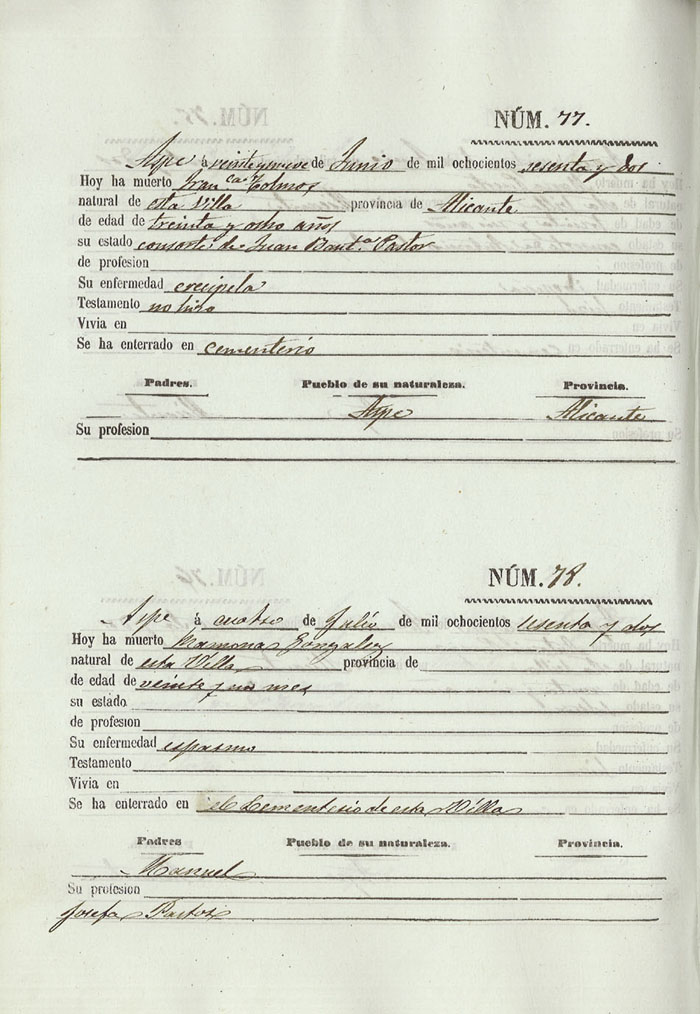 NÚM. 77.
Aspe á veinte y nueve de Junio de mil ochocientos sesenta y dos
Hoy ha muerto Fran.ca Tolmos
natural de esta Villa provincia de Alicante
de edad de treinta y ocho años
su estado consorte de Juan Baut.a Pastor
de profesion
Su enfermedad erecipela
Testamento no hizo
Vivia en
Se ha enterrado en cementerio
Padres. Pueblo de su naturaleza. Provincia.
Aspe Alicante
Su profesion
NÚM. 78.
Aspe á cuatro de Julio de mil ochocientos sesenta y dos
Hoy ha muerto Ramona Gonzalez
natural de esta Villa provincia de
de edad de veinte y un mes
su estado
de profesion
Su enfermedad espasmo
Testamento
Vivia en
Se ha enterrado en el Cementerio de esta Villa
Padres Pueblo de su naturaleza. Provincia.
Manuel
Su profesion
Josefa Pastor